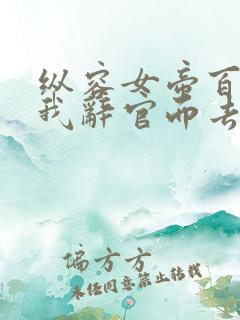 纵容女帝百
我辞官而去
偏方方
未经同意禁止转载